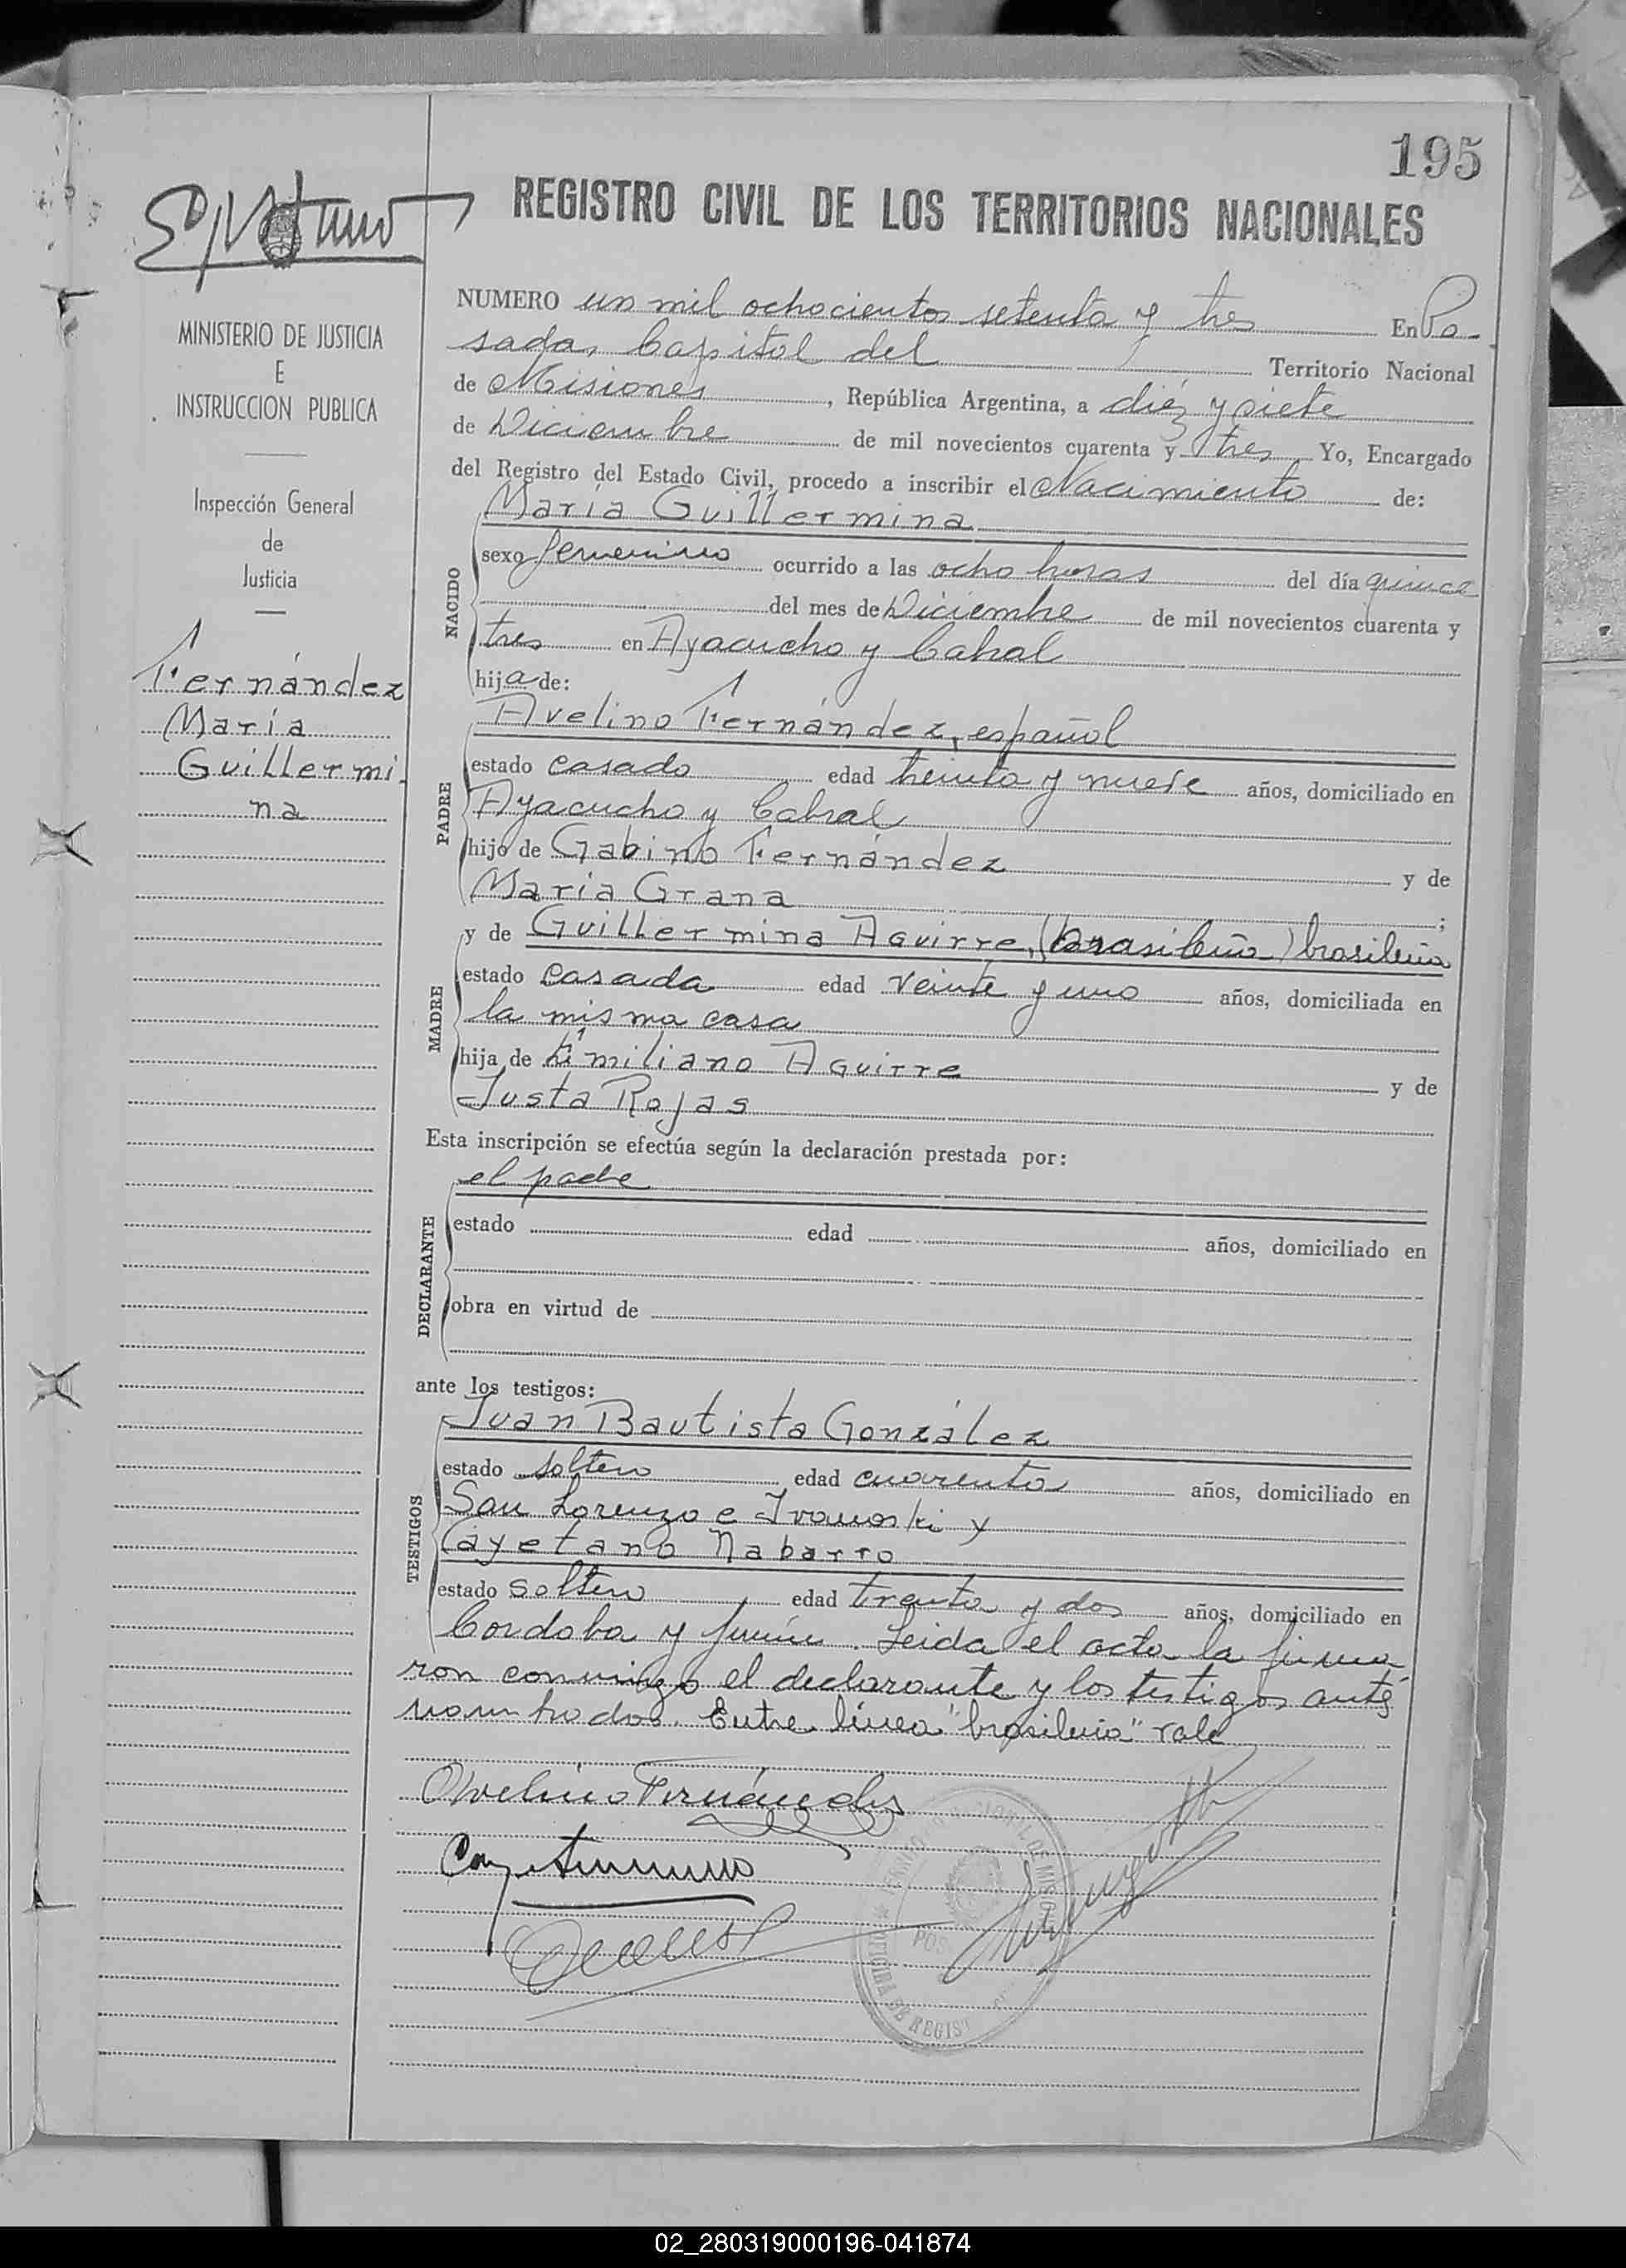 195
REGISTRO CIVIL DE LOS TERRITORIOS NACIONALES
MINISTERIO DE JUSTICIA
E
INSTRUCCION PUBLICA
Inspección General
de
Justicia
Fernández
María
Guillermi-
na
NUMERO un mil ochocientos setenta y tres En Po-
sadas Capital del Territorio Nacional
de Misiones, República Argentina, a diéz y siete
de Diciembre de mil novecientos cuarenta y tres Yo, Encargado
del Registro del Estado Civil, procedo a inscribir el Nacimiento de:
NACIDO
María Guillermina
sexo femenino ocurrido a las ocho horas del día quince
del mes de Diciembre de mil novecientos cuarenta y
tres en Ayacucho y Cabral
hija de:
PADRE
Avelino Fernández, español
estado casado edad treinta y nueve años, domiciliado en
Ayacucho y Cabral
hijo de Gabino Fernández y de
María Grana ;
MADRE
y de Guillermina Aguirre, (brasileña) brasileña
estado casada edad veinte y uno años, domiciliada en
la misma casa
hija de Emiliano Aguirre y de
Justa Rojas
Esta inscripción se efectúa según la declaración prestada por:
DECLARANTE
el padre
estado edad años, domiciliado en
obra en virtud de
ante los testigos:
TESTIGOS
Juan Bautista González
estado soltero edad cuarenta años, domiciliado en
San Lorenzo e y
Cayetano Nabarro
estado soltero edad trenta y dos años, domiciliado en
Cordoba y Junín. Leida el acta la firma-
ron conmigo el declarante y los testigos ante
nombrados. Entre línea "brasileña" vale
Avelino Fernández
OFICINA DE REGIST
02_280319000196-041874